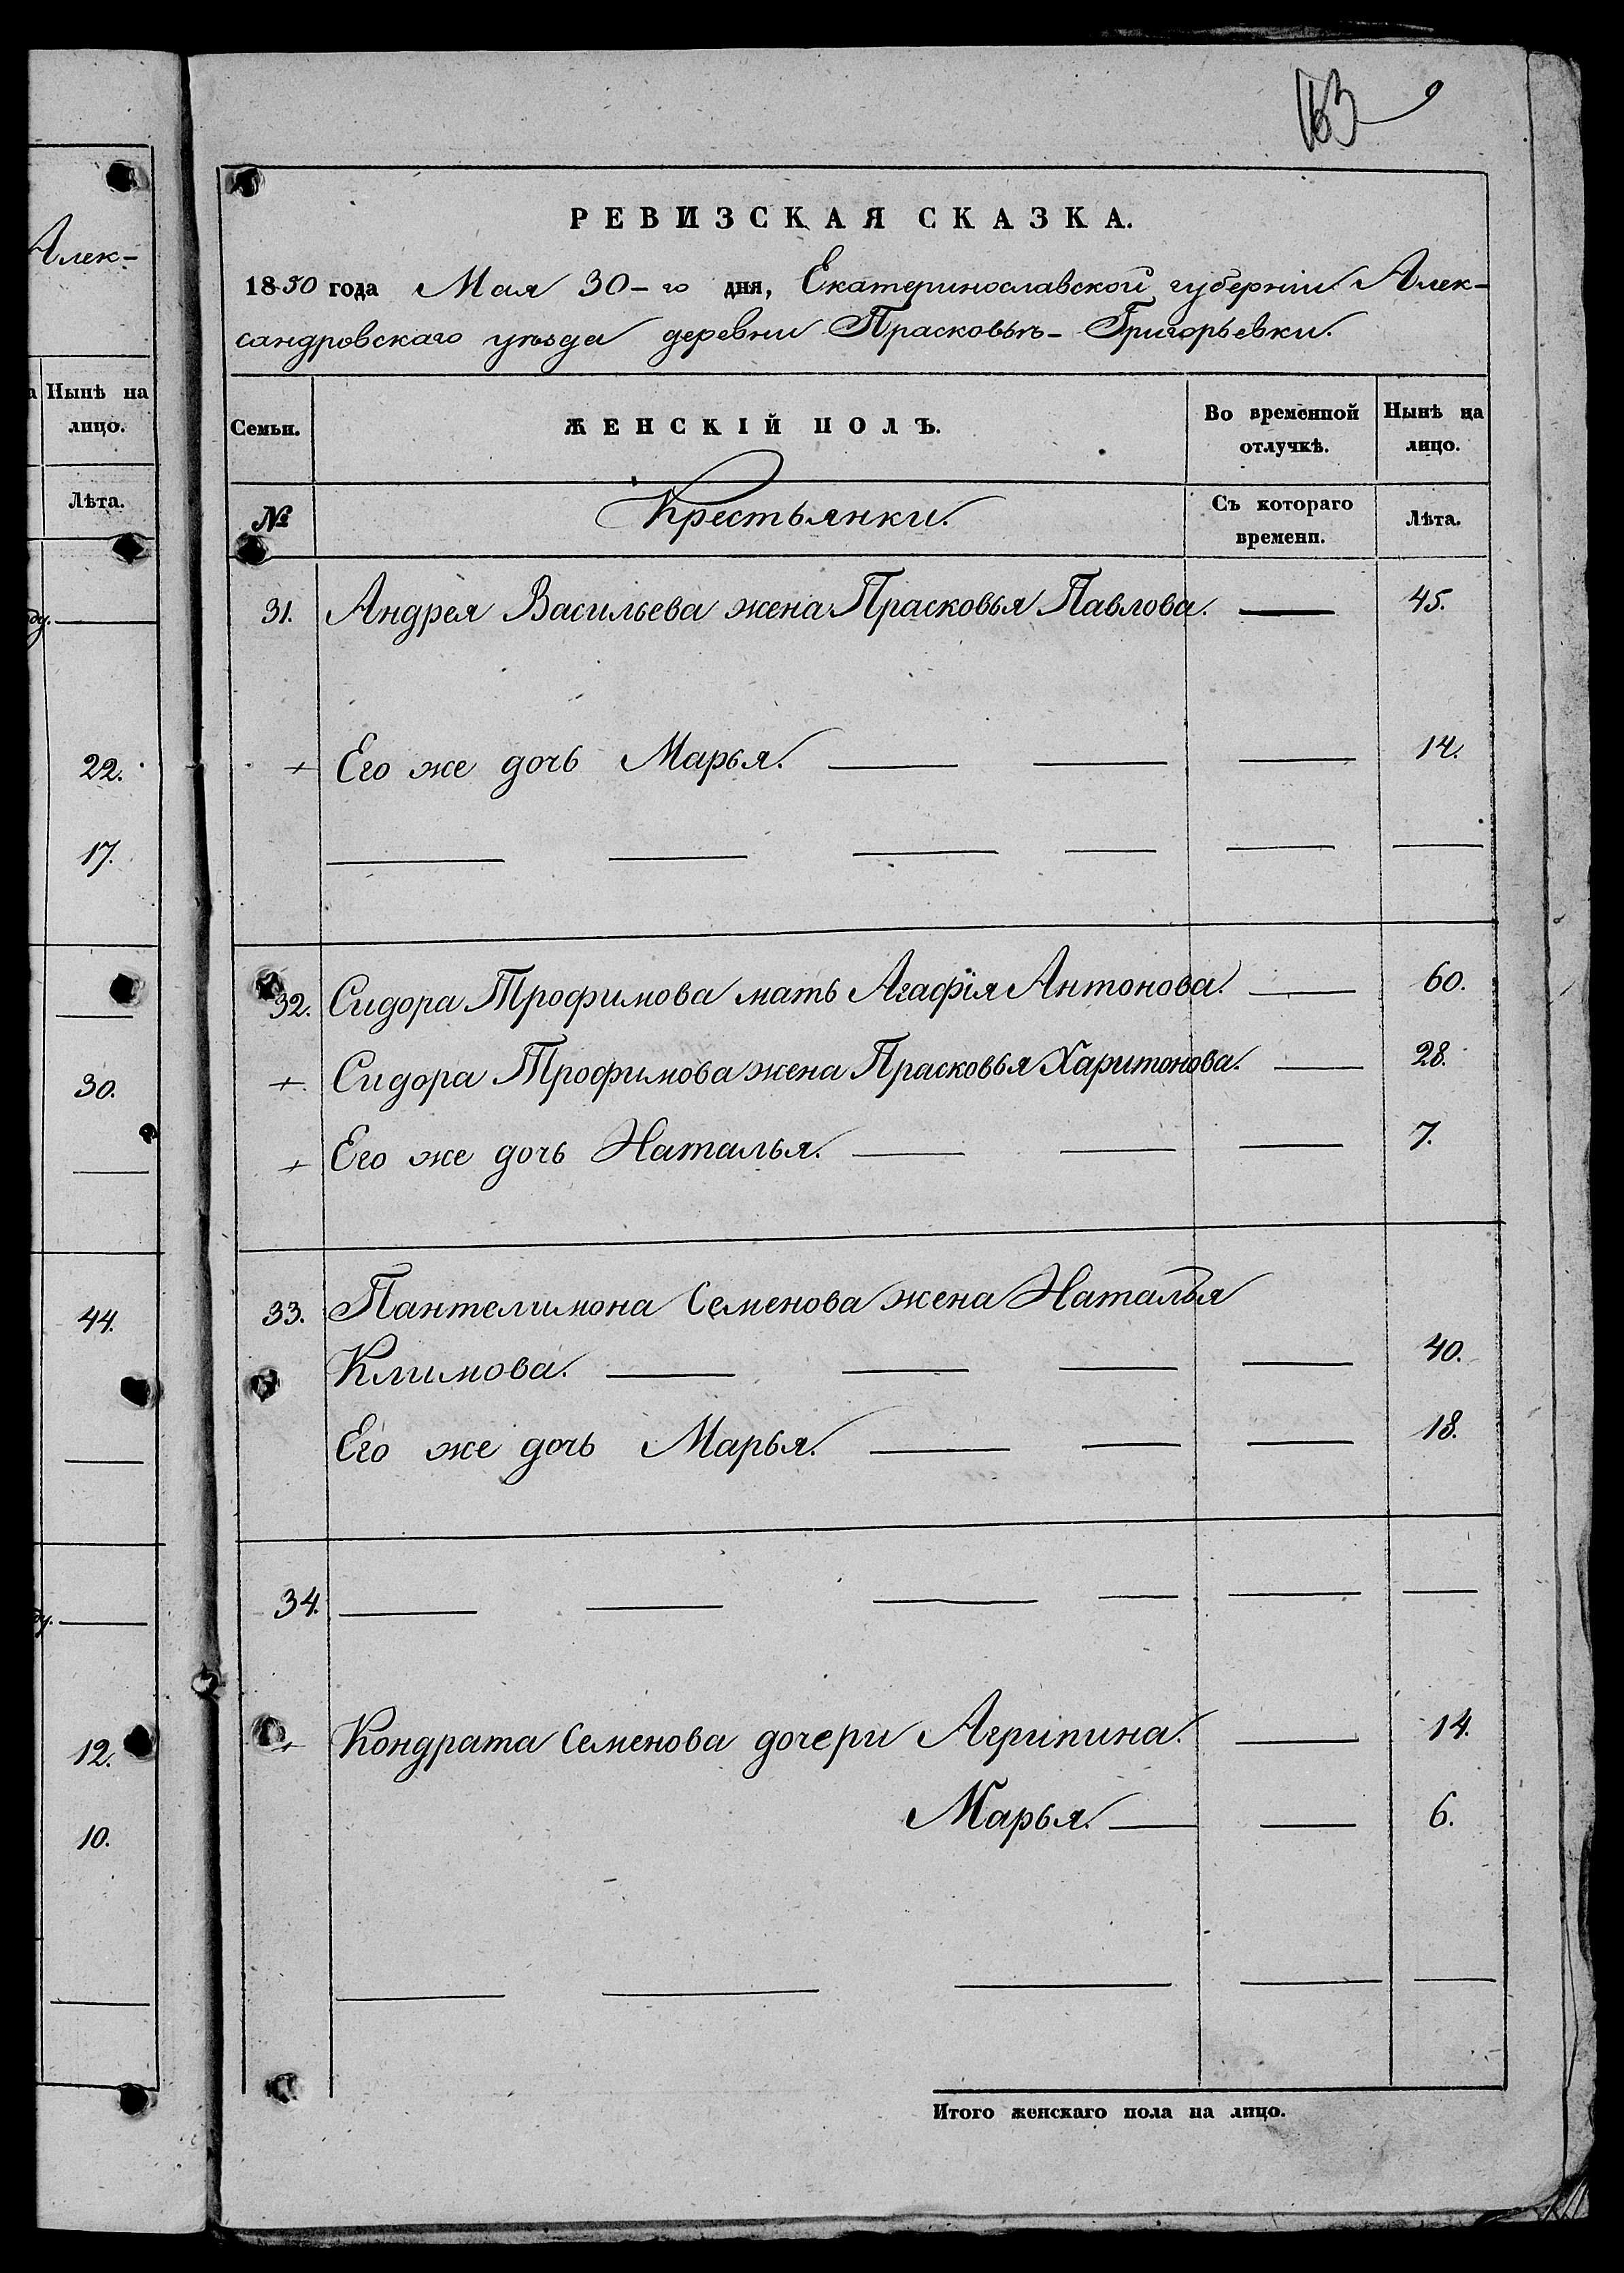 163
Алек-
а Нынѣ на
лицо.
Лѣта.
ду.
22.
17.
30.
44.
ду.
12.
10.
РЕВИЗСКАЯ СКАЗКА.
1850 года Мая 30-го дня, Екатеринославской губерніи Алек-
сандровскаго уѣзда деревни Прасковьѣ-Григорьевки.
Семьи. ЖЕНСКІЙ ПОЛЪ. Во временной отлучкѣ. Нынѣ на лицо.
№ Крестьянки. Съ котораго времени. Лѣта.
31. Андрея Васильева жена Прасковья Павлова. — 45.
+ Его же дочь Марья. — — — 14.
— — — — — —
32. Сидора Трофимова мать Агафія Антонова. — 60.
+ Сидора Трофимова жена Прасковья Харитонова. — 28.
+ Его же дочь Наталья. — — — 7.
33. Пантелимона Семенова жена Наталья
Климова. — — — — 40.
Его же дочь Марья. — — — 18.
34. — — — — — —
+ Кондрата Семенова дочери Агрипина. — 14.
Марья. — — 6.
— — — — —
Итого женскаго пола на лицо.